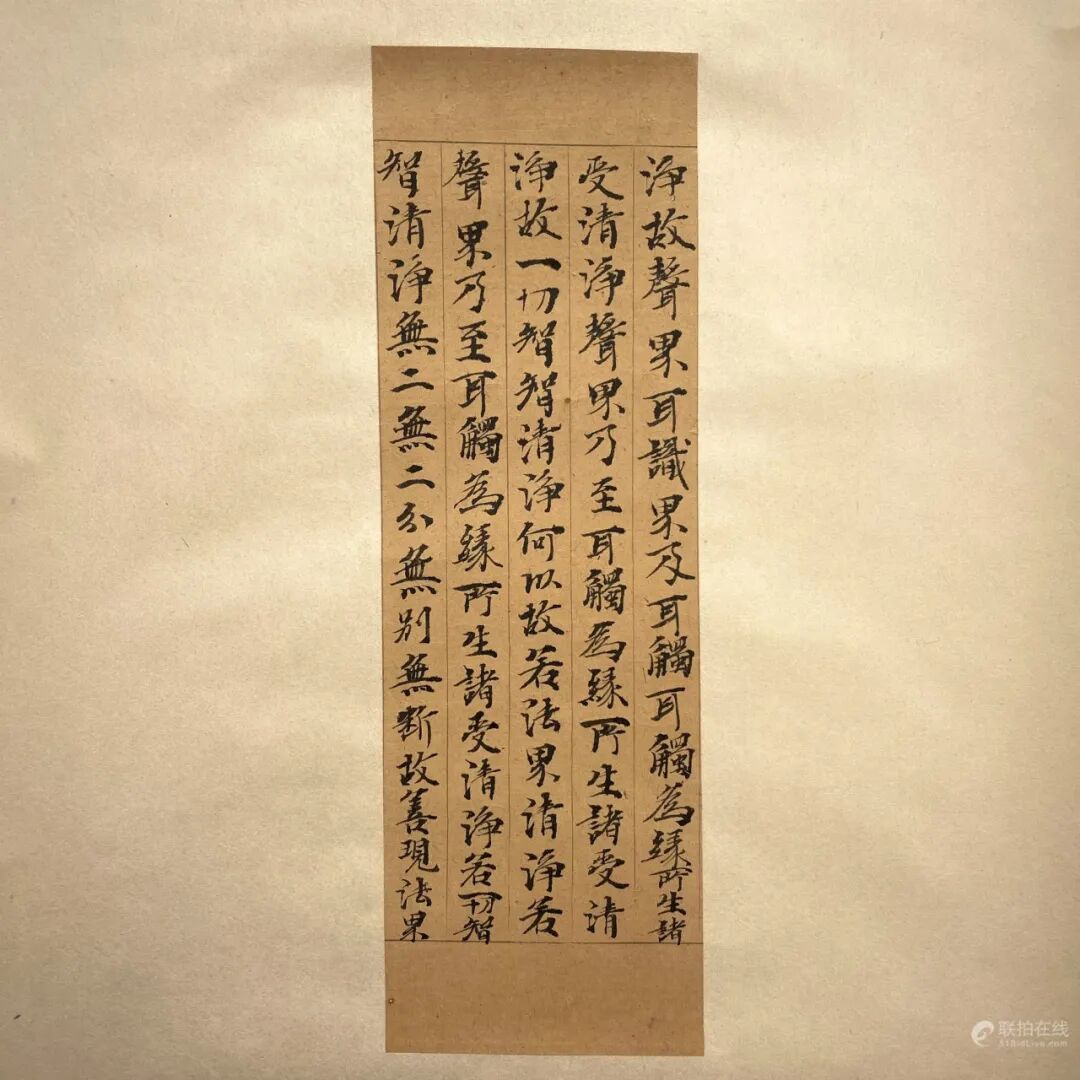 淨故聲界耳識界及耳觸耳觸為緣所生諸
受清淨聲界乃至耳觸為緣所生諸受清
淨故一切智智清淨何以故若法界清淨若
聲界乃至耳觸為緣所生諸受清淨若一切智
智清淨無二無二分無別無斷故善現法界
联拍在线
518idLive.com